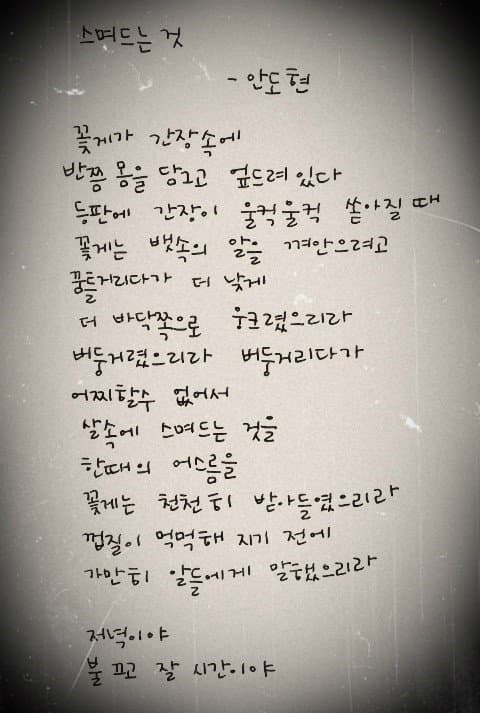 스며드는 것
- 안도현
꽃게가 간장속에
반쯤 몸을 담그고 엎드려있다
등판에 간장이 울컥울컥 쏟아질 때
꽃게는 뱃속의 알을 껴안으려고
꿈틀거리다가 더 낮게
더 바닥쪽으로 웅크렸으리라
버둥거렸으리라 버둥거리다가
어찌할수 없어서
살속에 스며드는 것을
한때의 어스름을
꽃게는 천천히 받아들였으리라
껍질이 먹먹해 지기 전에
가만히 알들에게 말했으리라
저녁이야
불 끄고 잘 시간이야